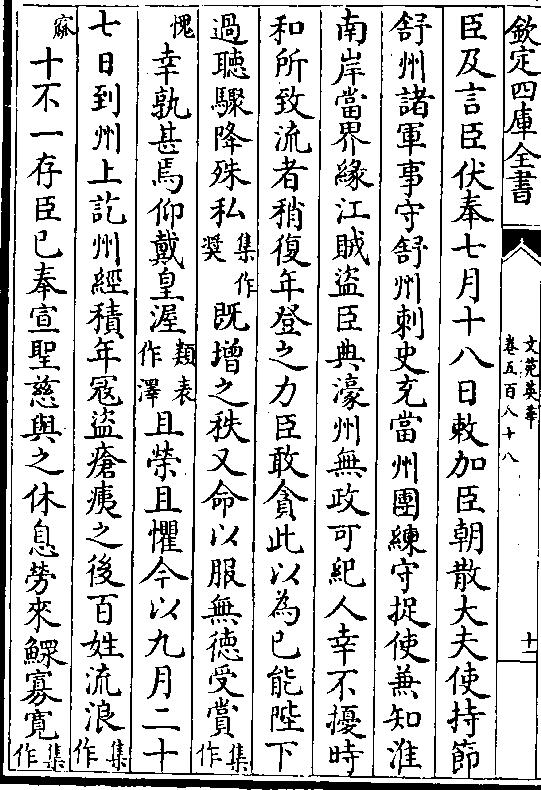 欽定四庫全書
文苑英華
卷五百八十八
十二
臣及言臣伏奉七月十八日敕加臣朝散大夫使持節
舒州諸軍事守舒州刺史充當州團練守捉使兼知淮
南岸當界緣江賊盜臣典濠州無政可紀人幸不擾時
和所致流者稍復年登之力臣敢貪此以為已能陛下
過聽驟降殊私集作奬既增之秩又命以服無德受賞集作
愧幸孰甚焉仰戴皇渥類表作澤且榮且懼今以九月二十
七日到州上訖州經積年冦盜瘡痍之後百姓流浪集作
寡十不一存臣已奉宣聖慈與之休息勞來鰥寡寛集作